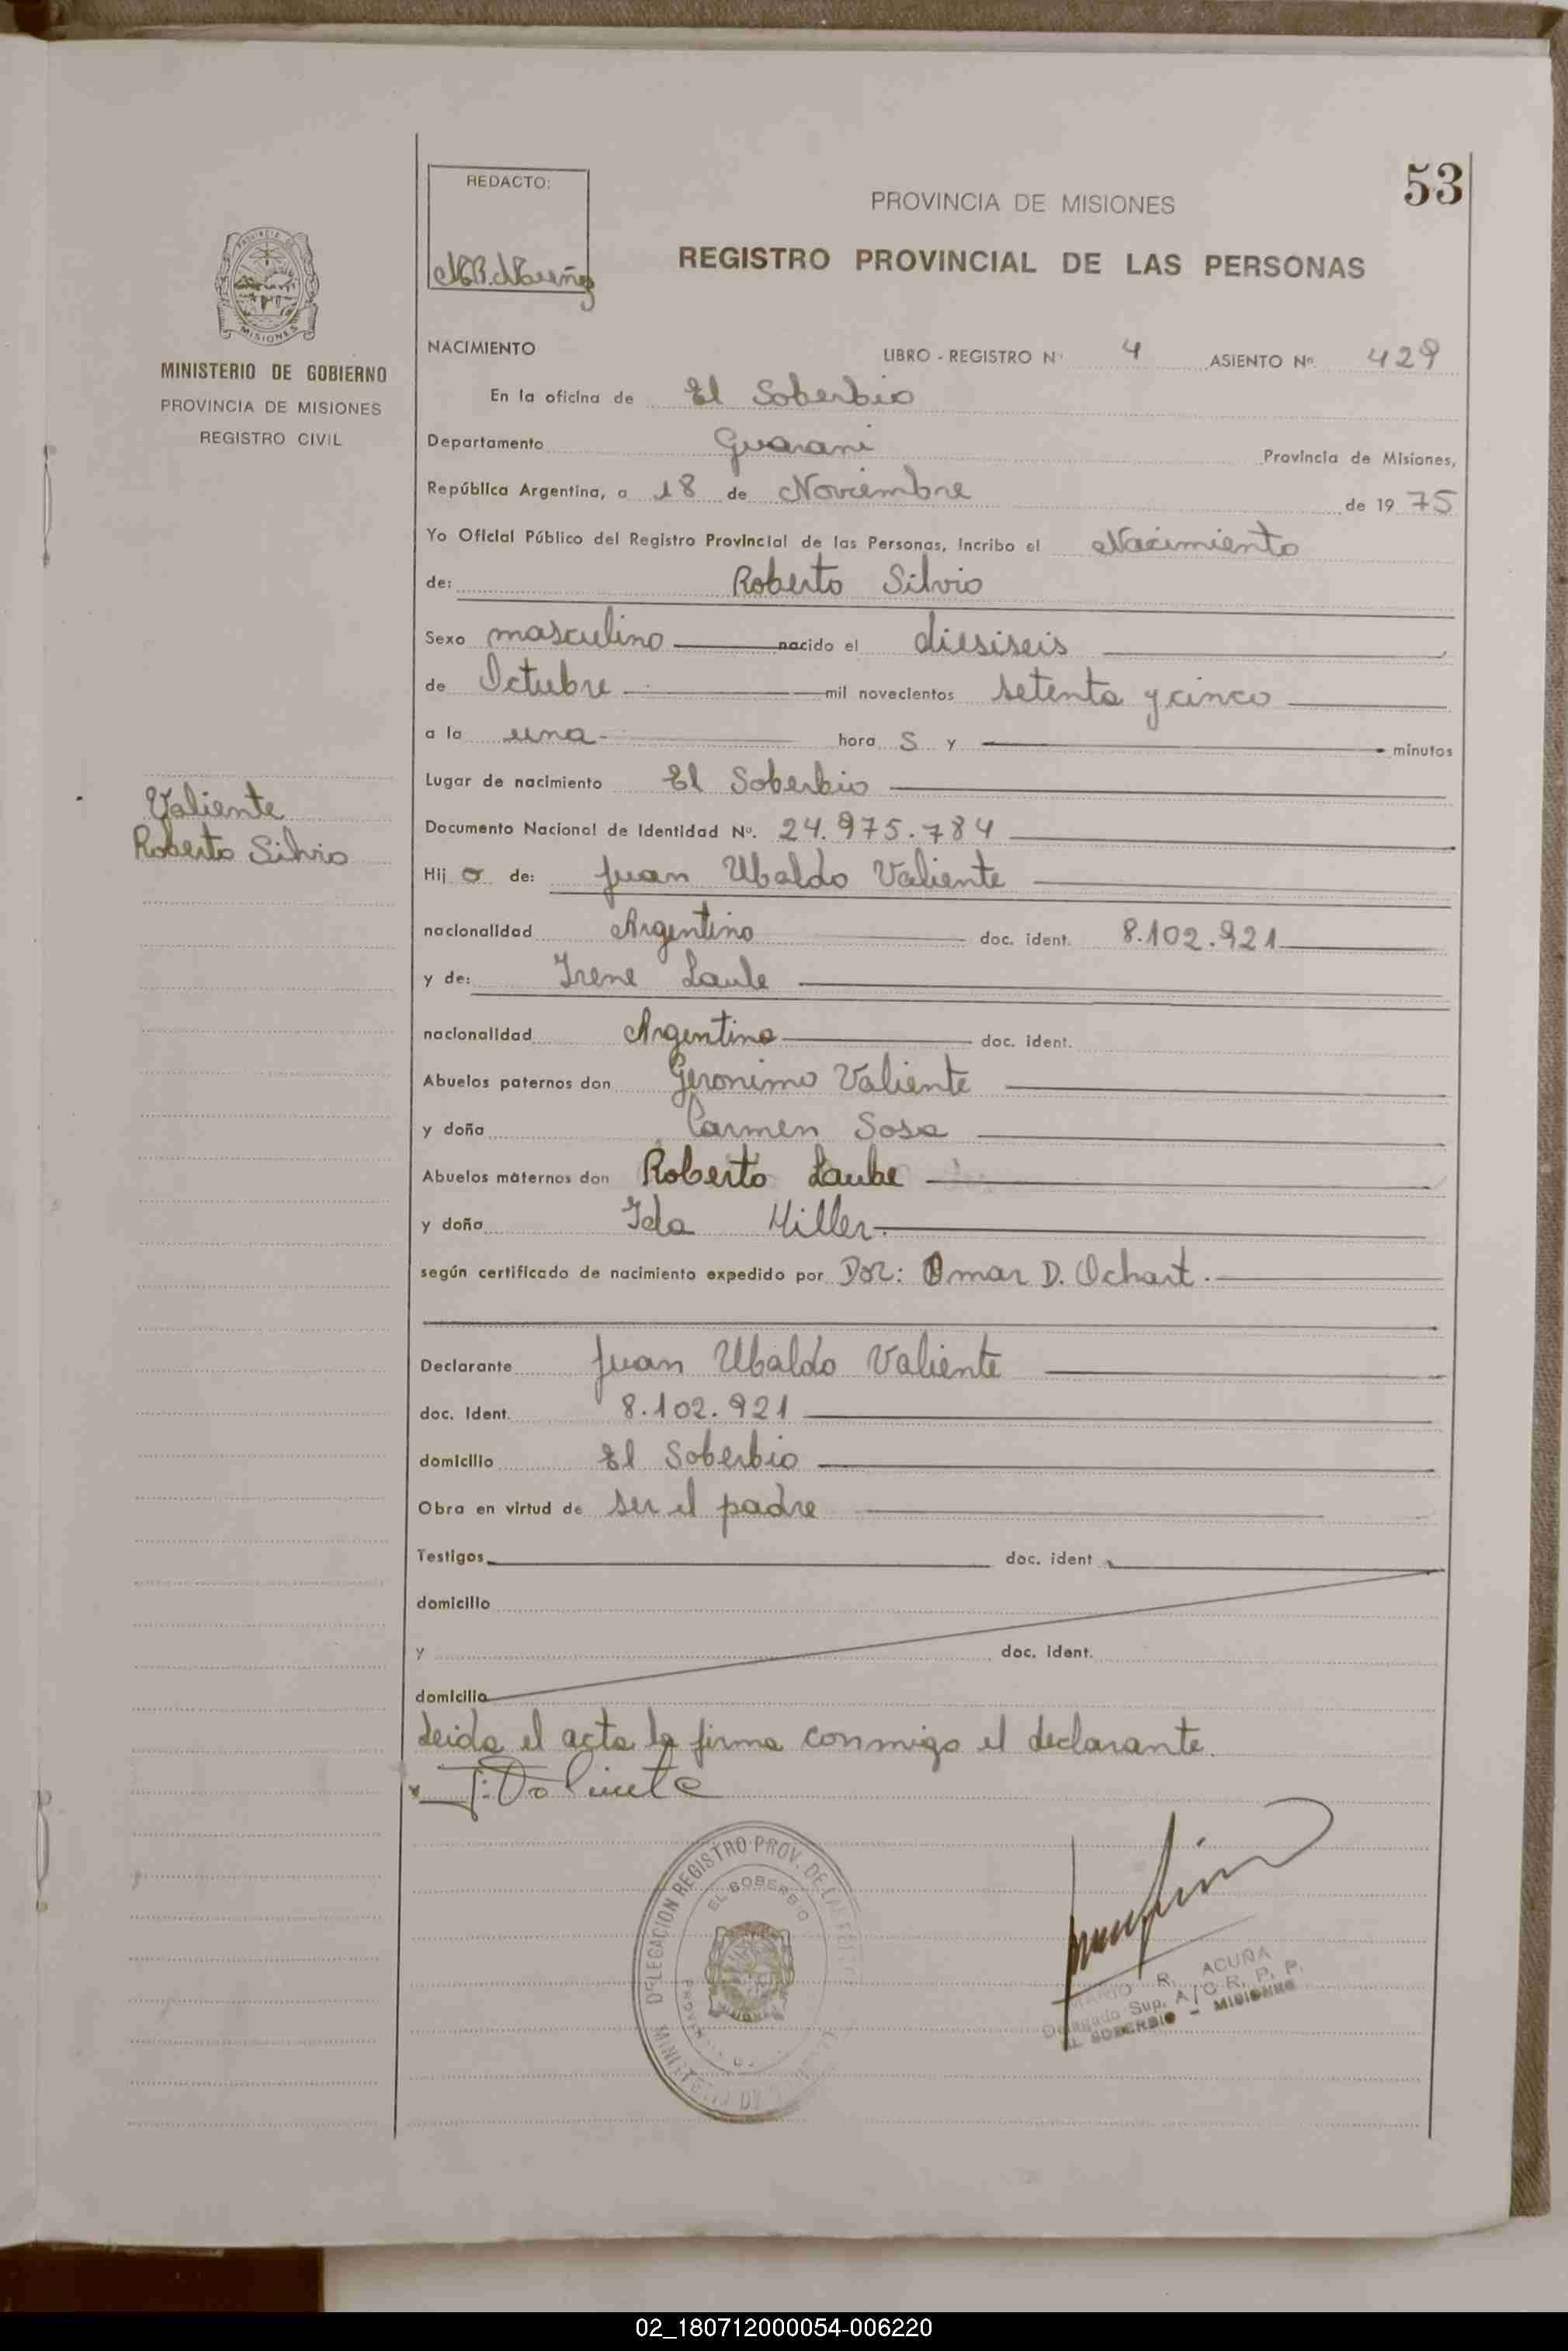 53
REDACTO:
PROVINCIA DE MISIONES
REGISTRO PROVINCIAL DE LAS PERSONAS
MINISTERIO DE GOBIERNO
PROVINCIA DE MISIONES
REGISTRO CIVIL
Valiente
Roberto Silvio
NACIMIENTO LIBRO - REGISTRO Nº 4 ASIENTO Nº. 429
En la oficina de El Soberbio
Departamento Guarani Provincia de Misiones,
República Argentina, a 18 de Noviembre de 19 75
Yo Oficial Público del Registro Provincial de las Personas, incribo el Nacimiento
de: Roberto Silvio
Sexo masculino nacido el diesiseis
de Octubre mil novecientos setenta y cinco
a la una hora s y minutos
Lugar de nacimiento El Soberbio
Documento Nacional de Identidad Nº. 24.975.784
Hij o de: Juan Ubaldo Valiente
nacionalidad Argentino doc. ident. 8.102.921
y de: Irene Laube
nacionalidad Argentina doc. ident.
Abuelos paternos don Geronimo Valiente
y doña Carmen Sosa
Abuelos maternos don Roberto Laube
y doña Ida Miller.
según certificado de nacimiento expedido por Doz: Omar D. Ochart.
Declarante Juan Ubaldo Valiente
doc. ident. 8.102.921
domicilio El Soberbio
Obra en virtud de ser el padre
Testigos doc. ident
domicilio
y doc. ident.
domicilio
Leida el acta la firma conmigo el declarante.
J. Valiente
DELEGACION REGISTRO PROV. DE LAS
EL SOBERBIO
MARIO R. ACUÑA
Delegado Sup. A/C R. P. P.
EL SOBERBIO - MISIONES
02_180712000054-006220